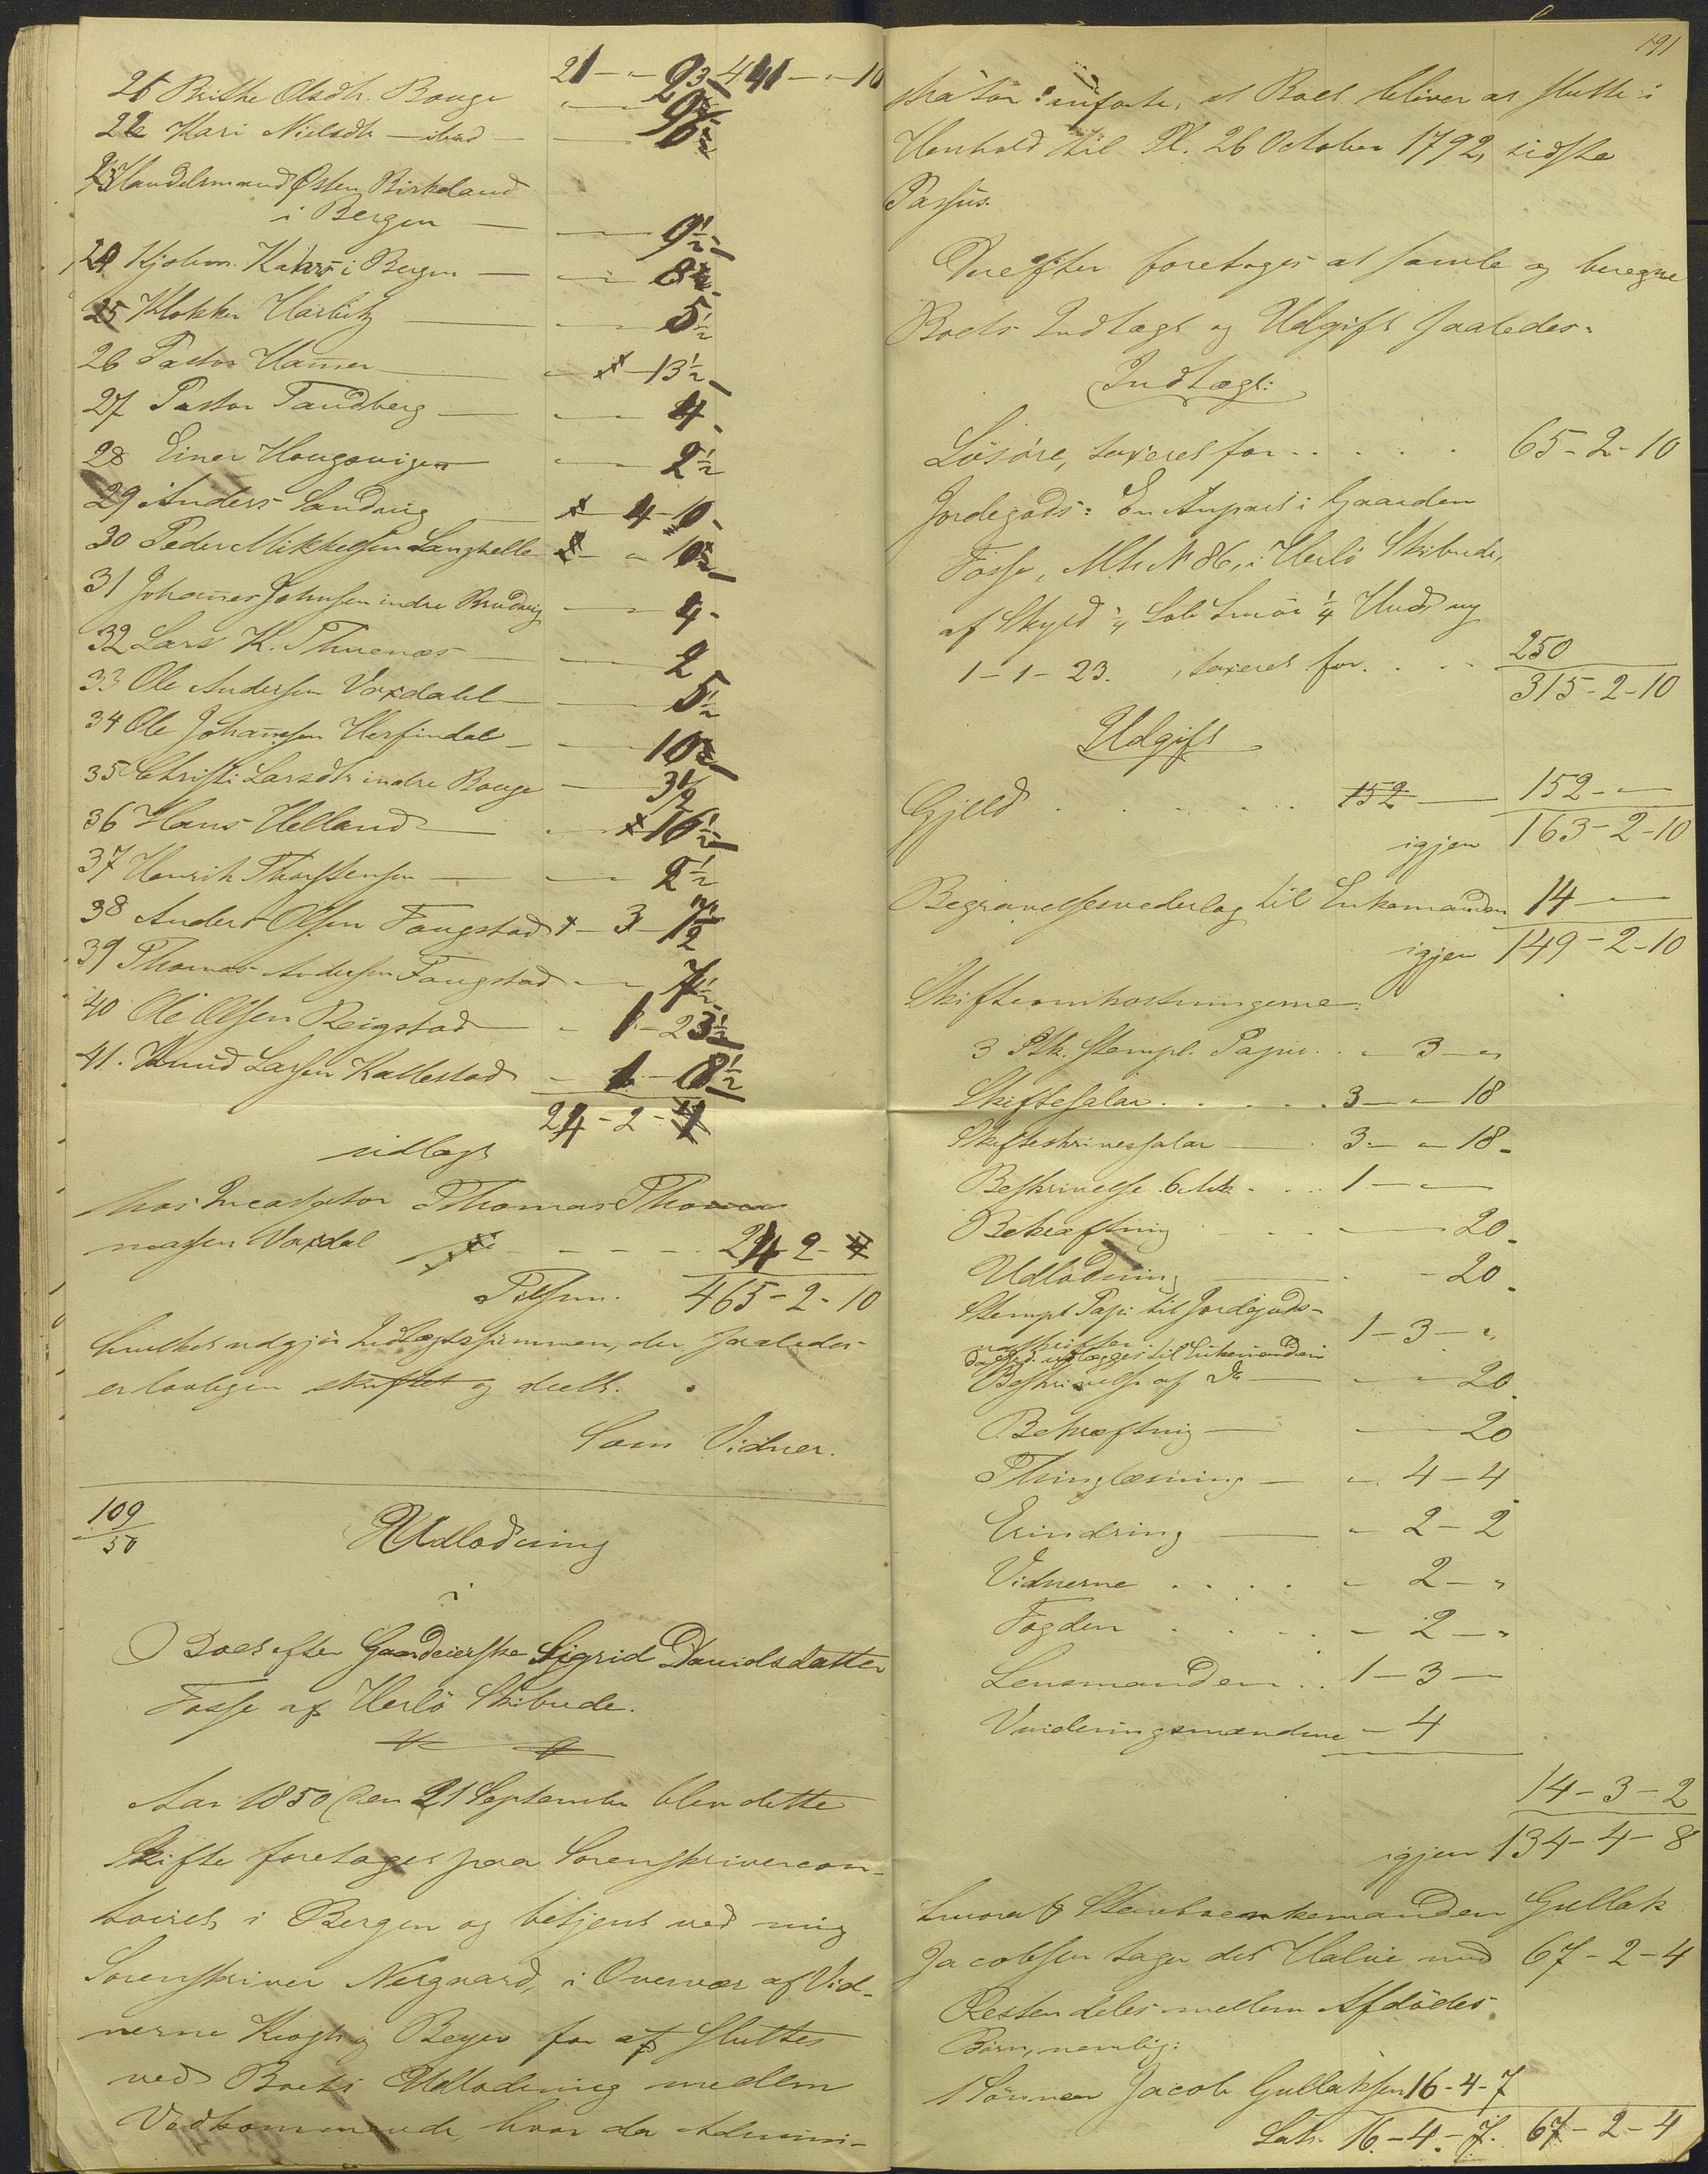 21 - " - 23 - 441 - " - 10
21 Brithe Olsdtr. Bouge " - " 9½
22 Kari Nielsdtr - ibid - 6½
23 Handelsmand Østen Birkeland
i Bergen - " - 9½
24 Kjøbm. Kahrs i Bergen - " - 8½
25 Klokker Harbitz - " - 5½
26 Pastor Hamer - " - 13½
27 Pastor Tandberg - " - 4
28 Einer Hougsvigen - " - 2½
29 Anders Sandvig 4 - 10
30 Peder Mikkelsen Langhelle " - 10½
31 Johannes Johnsen indre Brudvig - " 4 -
32 Lars K. Thuenæs - 2
33 Ole Andersen Vaxdahl - 5½
34 Ole Johannsen Herfindal - 10½
35 Christi Larsdtr indre Bouge - 3½
36 Hans Helland - 16½
37 Henrik Thorstensen - 2½
38 Anders Olsen Fougstad - 3 - 1½
39 Thomas Andersen Fougstad - " - 7½
40 Ole Olsen Reigstad - " - 1 - 23½
41. Knud Larsen Kallestad - 1 - 8½
24 - 2 - "
udlagt
hos Incasator Thomas Tho
massen Vaxdal - - - 24 - 2 - "
Tilsam. 465 - 2 - 10
hvilket udgjør Indtægtssummen, der saaledes
er lovligen skiftet og deelt.
Som Vidner.
109
50
Udlodning
i
Boet efter Gaardeierske Sigrid Davidsdatter
Fosse af Herlö Skibrede.
Aar 1850 den 21 September blev dette
Skifte foretaget paa Sorenskrivercon-
toiret i Bergen og betjent ved mig
Sorenskriver Nergaard, i Overvær af Vid-
nerne Krogh og Beyer for at sluttes
ved Boets Udlodning mellem
Vedkommende, hvor da Admini-
191
strator anførte, at Boet bliver at slutte i
Henhold til Pl. 26 October 1792, sidste
Passus.
Derefter foretoges at samle og beregne
Boets Indtægt og Udgift saaledes:
Indtægt:
Lösöre, taxeret for . . . . . 65 - 2 - 10
Jordegods: En Anpart i Gaarden
Fosse, Mtr N 86, i Herlö Skibrede,
af Skyld Løb Smör ¼ Hud ny
1 - 1 - 23. , taxeret for . . . . 250
315 - 2 - 10
Udgift
Gjeld . . . . . . 152 - 152 - " -
igjen 163 - 2 - 10
Begravelsesvederlag til Enkemanden 14 - " -
igjen 149 - 2 - 10
Skifteomkostningerne:
3 Stk. Stempl. Papir . . " - 3 - "
Skiftesalar . . . . . . 3 - " - 18
Skifteskriversalar - 3 - " - 18
Beskrivelse 6 Ark . . . 1 - " -
Bekræftning . . . - 20
Udlodning - 20
Stempl. Papi: til Jordegods-
udskriften 1 - 3 - "
da udlægges til Enkemanden
Beskrivelse af Do - " - 20
Bekræftning - 20
Thinglæsning - " - 4 - 4
Erindring - " - 2 - 2
Vidnerne . . . . - 2 - "
Fogden . . . . - 2 - "
Lensmanden . . 1 - 3 -
Vurderingsmændene - 4
14 - 3 - 2
igjen 134 - 4 - 8
hvoraf Stervboenkemanden Gullak
Jacobsen tager det Halve med 67 - 2 - 4
Resten deles mellem Afdödes
Börn, nemlig:
1 Sönnen Jacob Gullaksen 16 - 4 - 7
Lats. 16 - 4 - 7. 67 - 2 - 4